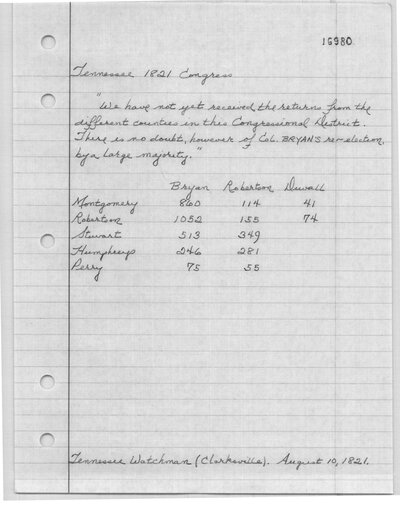 16980
Tennessee 1821 Congress
"We have not yet received the returns from the
different counties in this Congressional District.
There is no doubt, however of Col. BRYAN'S re-election
by a large majority."
Bryan Robertson Duvall
Montgomery 860 114 41
Robertson 1052 155 74
Stewart 513 349
Humphreys 246 281
Perry 75 55
Tennessee Watchman (Clarksville). August 10, 1821.